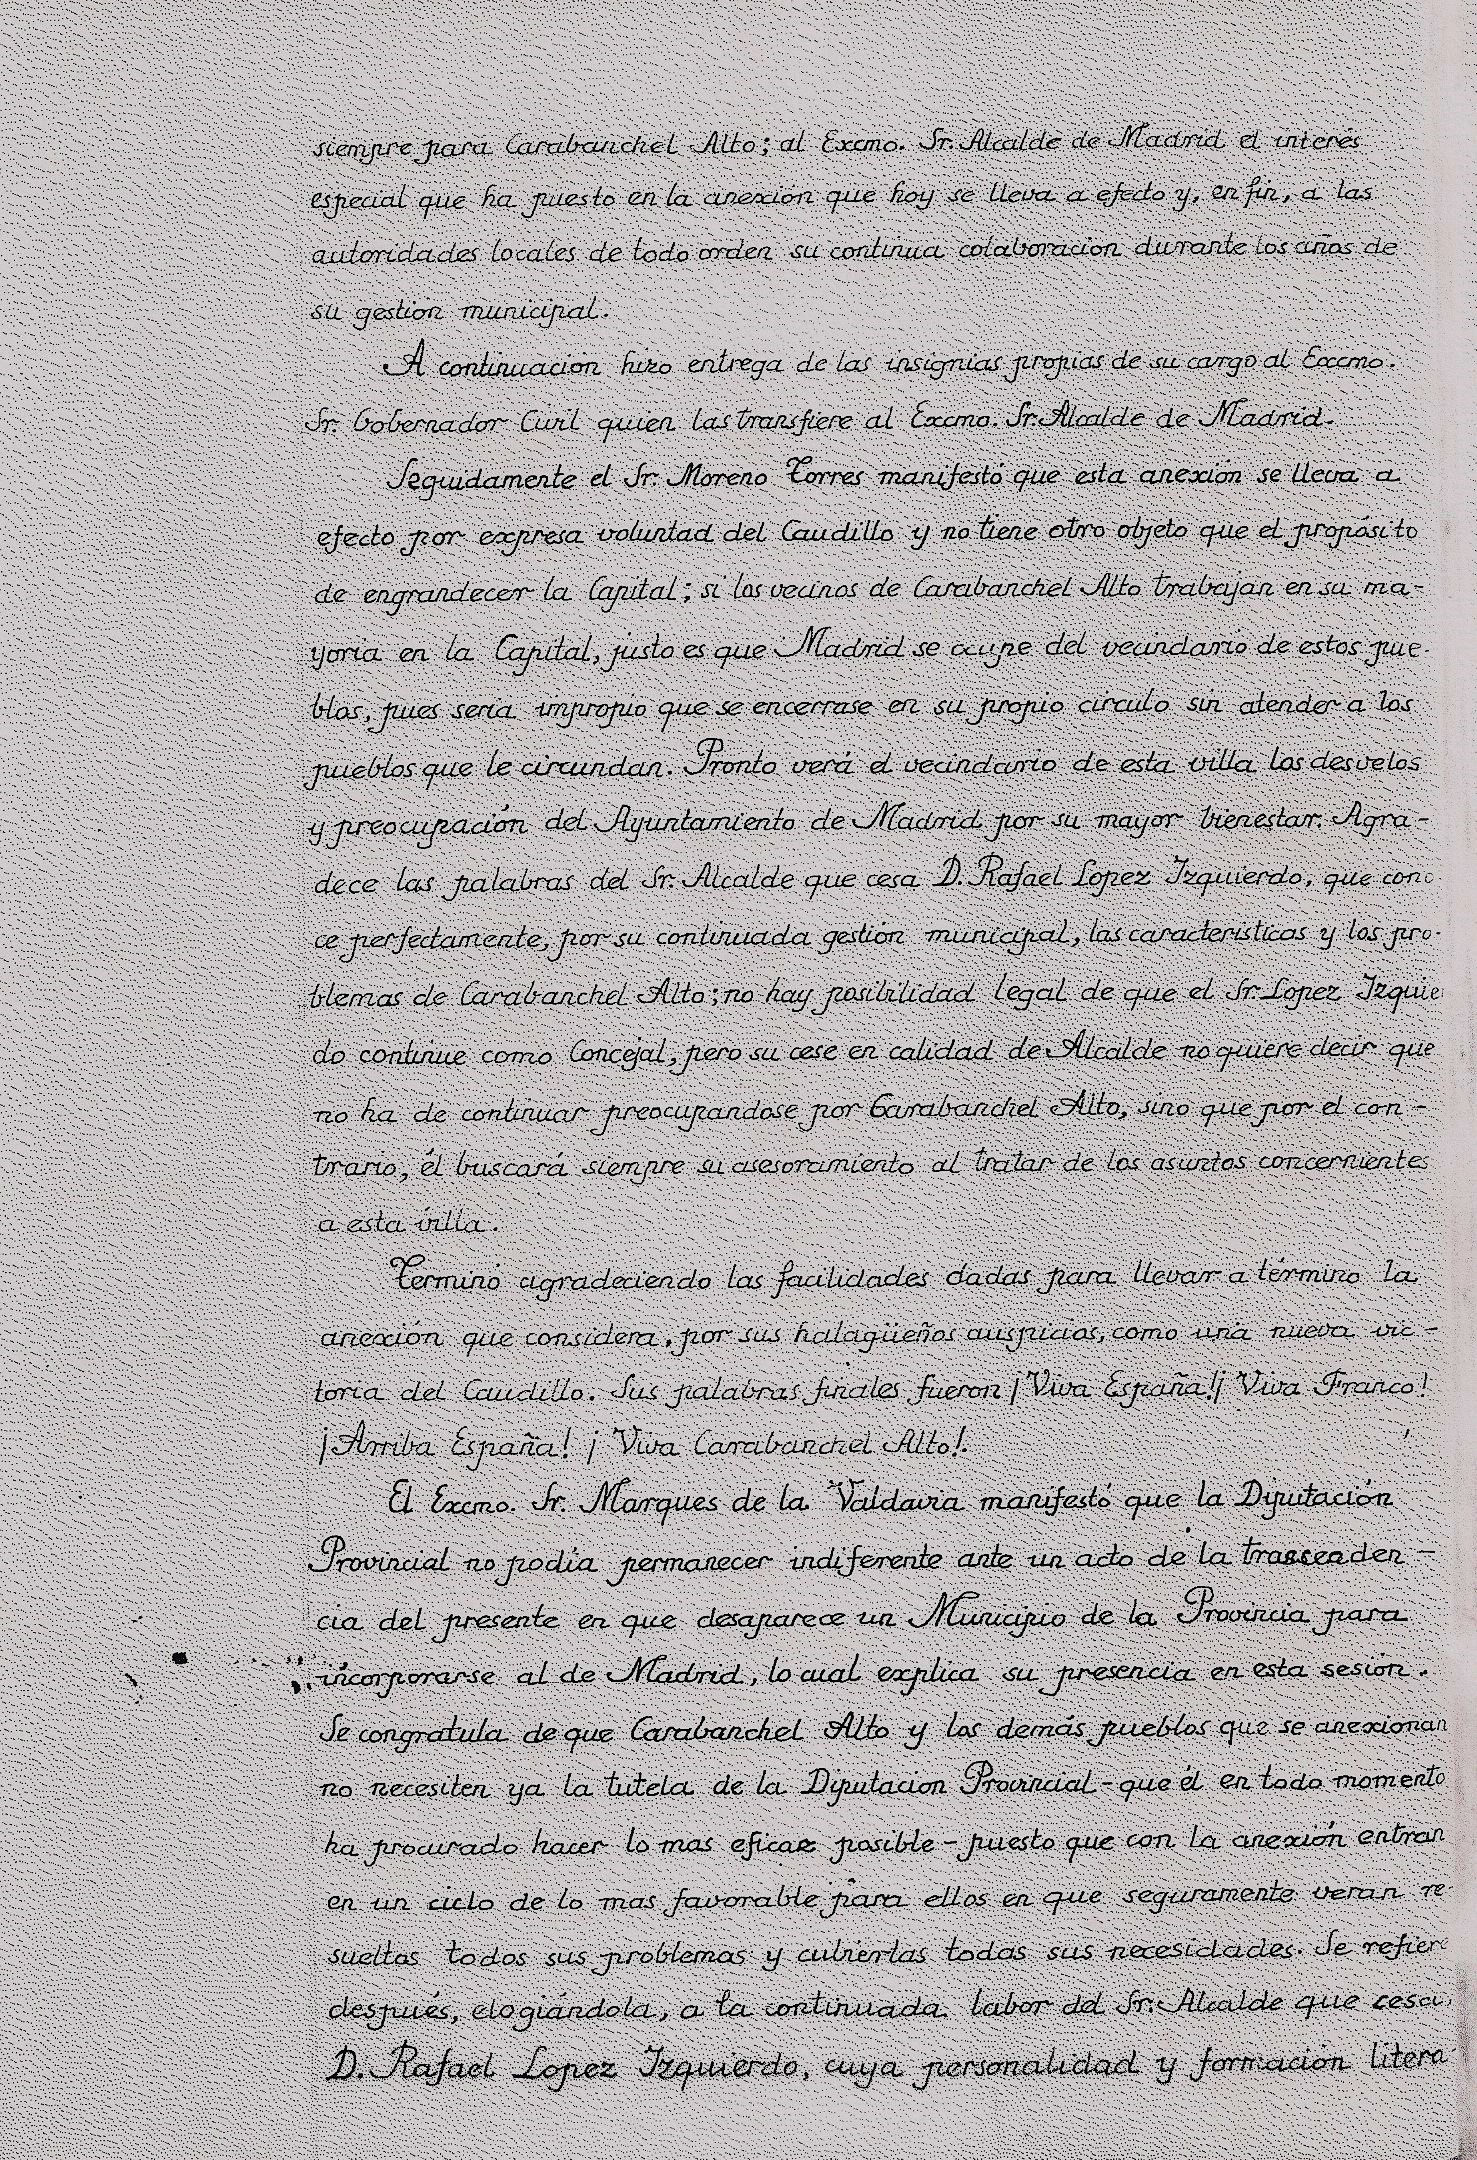 siempre para Carabanchel Alto; al Excmo. Sr. Alcalde de Madrid el interés
especial que ha puesto en la anexión que hoy se lleva a efecto y, en fin, a las
autoridades locales de todo orden su continua colaboración durante los años de
su gestión municipal.
A continuación hizo entrega de las insignias propias de su cargo al Excmo.
Sr. Gobernador Civil quien las transfiere al Excmo. Sr. Alcalde de Madrid.
Seguidamente el Sr. Moreno Torres manifestó que esta anexión se lleva a
efecto por expresa voluntad del Caudillo y no tiene otro objeto que el propósito
de engrandecer la Capital; si los vecinos de Carabanchel Alto trabajan en su ma-
yoria en la Capital, justo es que Madrid se ocupe del vecindario de estos pue-
blos, pues seria impropio que se encerrase en su propio circulo sin atender a los
pueblos que le circundan. Pronto verá el vecindario de esta villa los desvelos
y preocupación del Ayuntamiento de Madrid por su mayor bienestar. Agra-
dece las palabras del Sr. Alcalde que cesa D. Rafael Lopez Izquierdo, que cono
ce perfectamente, por su continuada gestión municipal, las caracteristicas y los pro-
blemas de Carabanchel Alto; no hay posibilidad legal de que el Sr. Lopez Izquier
do continue como Concejal, pero su cese en calidad de Alcalde no quiere decir que
no ha de continuar preocupandose por Carabanchel Alto, sino que por el con-
trario, él buscará siempre su asesoramiento al tratar de los asuntos concernientes
a esta villa.
Terminó agradeciendo las facilidades dadas para llevar a término la
anexión que considera, por sus halagüeños auspicios, como una nueva vic-
toria del Caudillo. Sus palabras finales fueron ¡Viva España! ¡Viva Franco!
¡Arriba España! ¡Viva Carabanchel Alto!.
El Excmo. Sr. Marques de la Valdavia manifestó que la Diputación
Provincial no podía permanecer indiferente ante un acto de la trascenden-
cia del presente en que desaparece un Municipio de la Provincia para
incorporarse al de Madrid, lo cual explica su presencia en esta sesión.
Se congratula de que Carabanchel Alto y los demás pueblos que se anexionan
no necesiten ya la tutela de la Diputacion Provincial - que él en todo momento
ha procurado hacer lo mas eficaz posible - puesto que con la anexión entran
en un ciclo de lo mas favorable para ellos en que seguramente veran re-
sueltos todos sus problemas y cubiertas todas sus necesidades. Se refiere
después, elogiándola, a la continuada labor del Sr. Alcalde que cesa,
D. Rafael Lopez Izquierdo, cuya personalidad y formación litera-